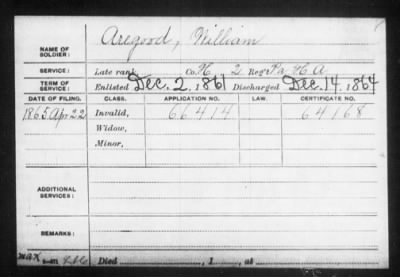 NAME OF SOLDIER: Aregood, William
SERVICE: Late rank, Co. H, 2 Reg't Pa H A
TERM OF SERVICE: Enlisted Dec. 2, 1861 Discharged Dec. 14, 1864
DATE OF FILING. CLASS. APPLICATION NO. LAW. CERTIFICATE NO.
1865 Apr 22 Invalid, 66414 64168
Widow,
Minor,
ADDITIONAL SERVICES:
REMARKS:
Died , 1 , at